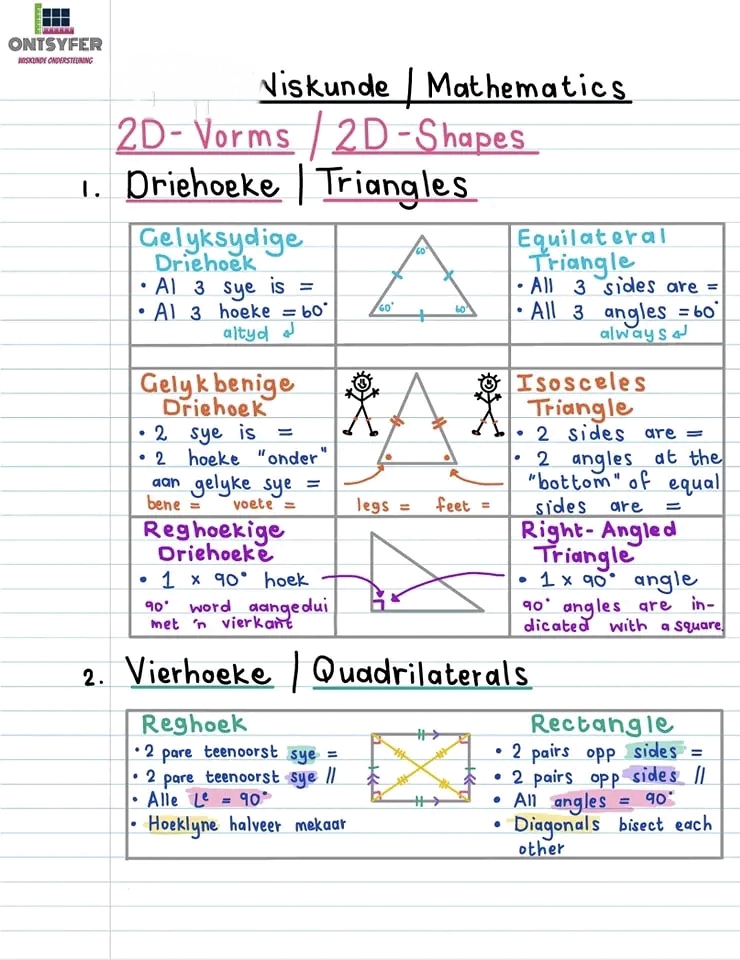 ONTSYFER
WISKUNDE ONDERSTEUNING
Wiskunde / Mathematics
2D-Vorms / 2D-Shapes
1. Driehoeke / Triangles
Gelyksydige
Driehoek
• Al 3 sye is =
• Al 3 hoeke = 60°
altyd ↲
60°
60°
60°
Equilateral
Triangle
• All 3 sides are =
• All 3 angles = 60°
always ↲
Gelykbenige
Driehoek
• 2 sye is =
• 2 hoeke "onder"
aan gelyke sye =
bene = voete =
legs = feet =
Isosceles
Triangle
• 2 sides are =
• 2 angles at the
"bottom" of equal
sides are =
Reghoekige
Driehoeke
• 1 x 90° hoek
90° word aangedui
met 'n vierkant
Right-Angled
Triangle
• 1 x 90° angle
90° angles are in-
dicated with a square.
2. Vierhoeke / Quadrilaterals
Reghoek
• 2 pare teenoorst sye =
• 2 pare teenoorst sye //
• Alle Lᵉ = 90°
• Hoeklyne halveer mekaar
Rectangle
• 2 pairs opp sides =
• 2 pairs opp sides //
• All angles = 90°
• Diagonals bisect each
other